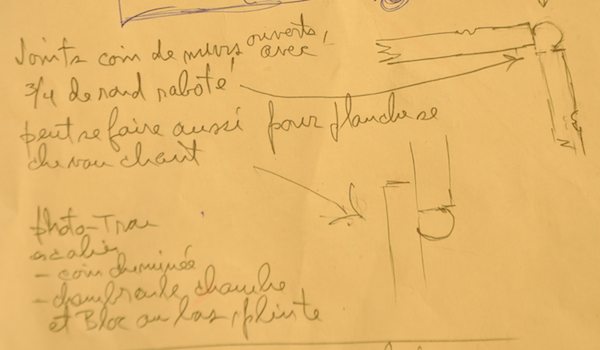 Joints coin de murs ouverts, avec
3/4 de rond raboté
peut se faire aussi pour planche se
chevauchant
photo-Trou
escalier
- coin cheminée
- chambranle chambre
et Bloc au bas, plinte